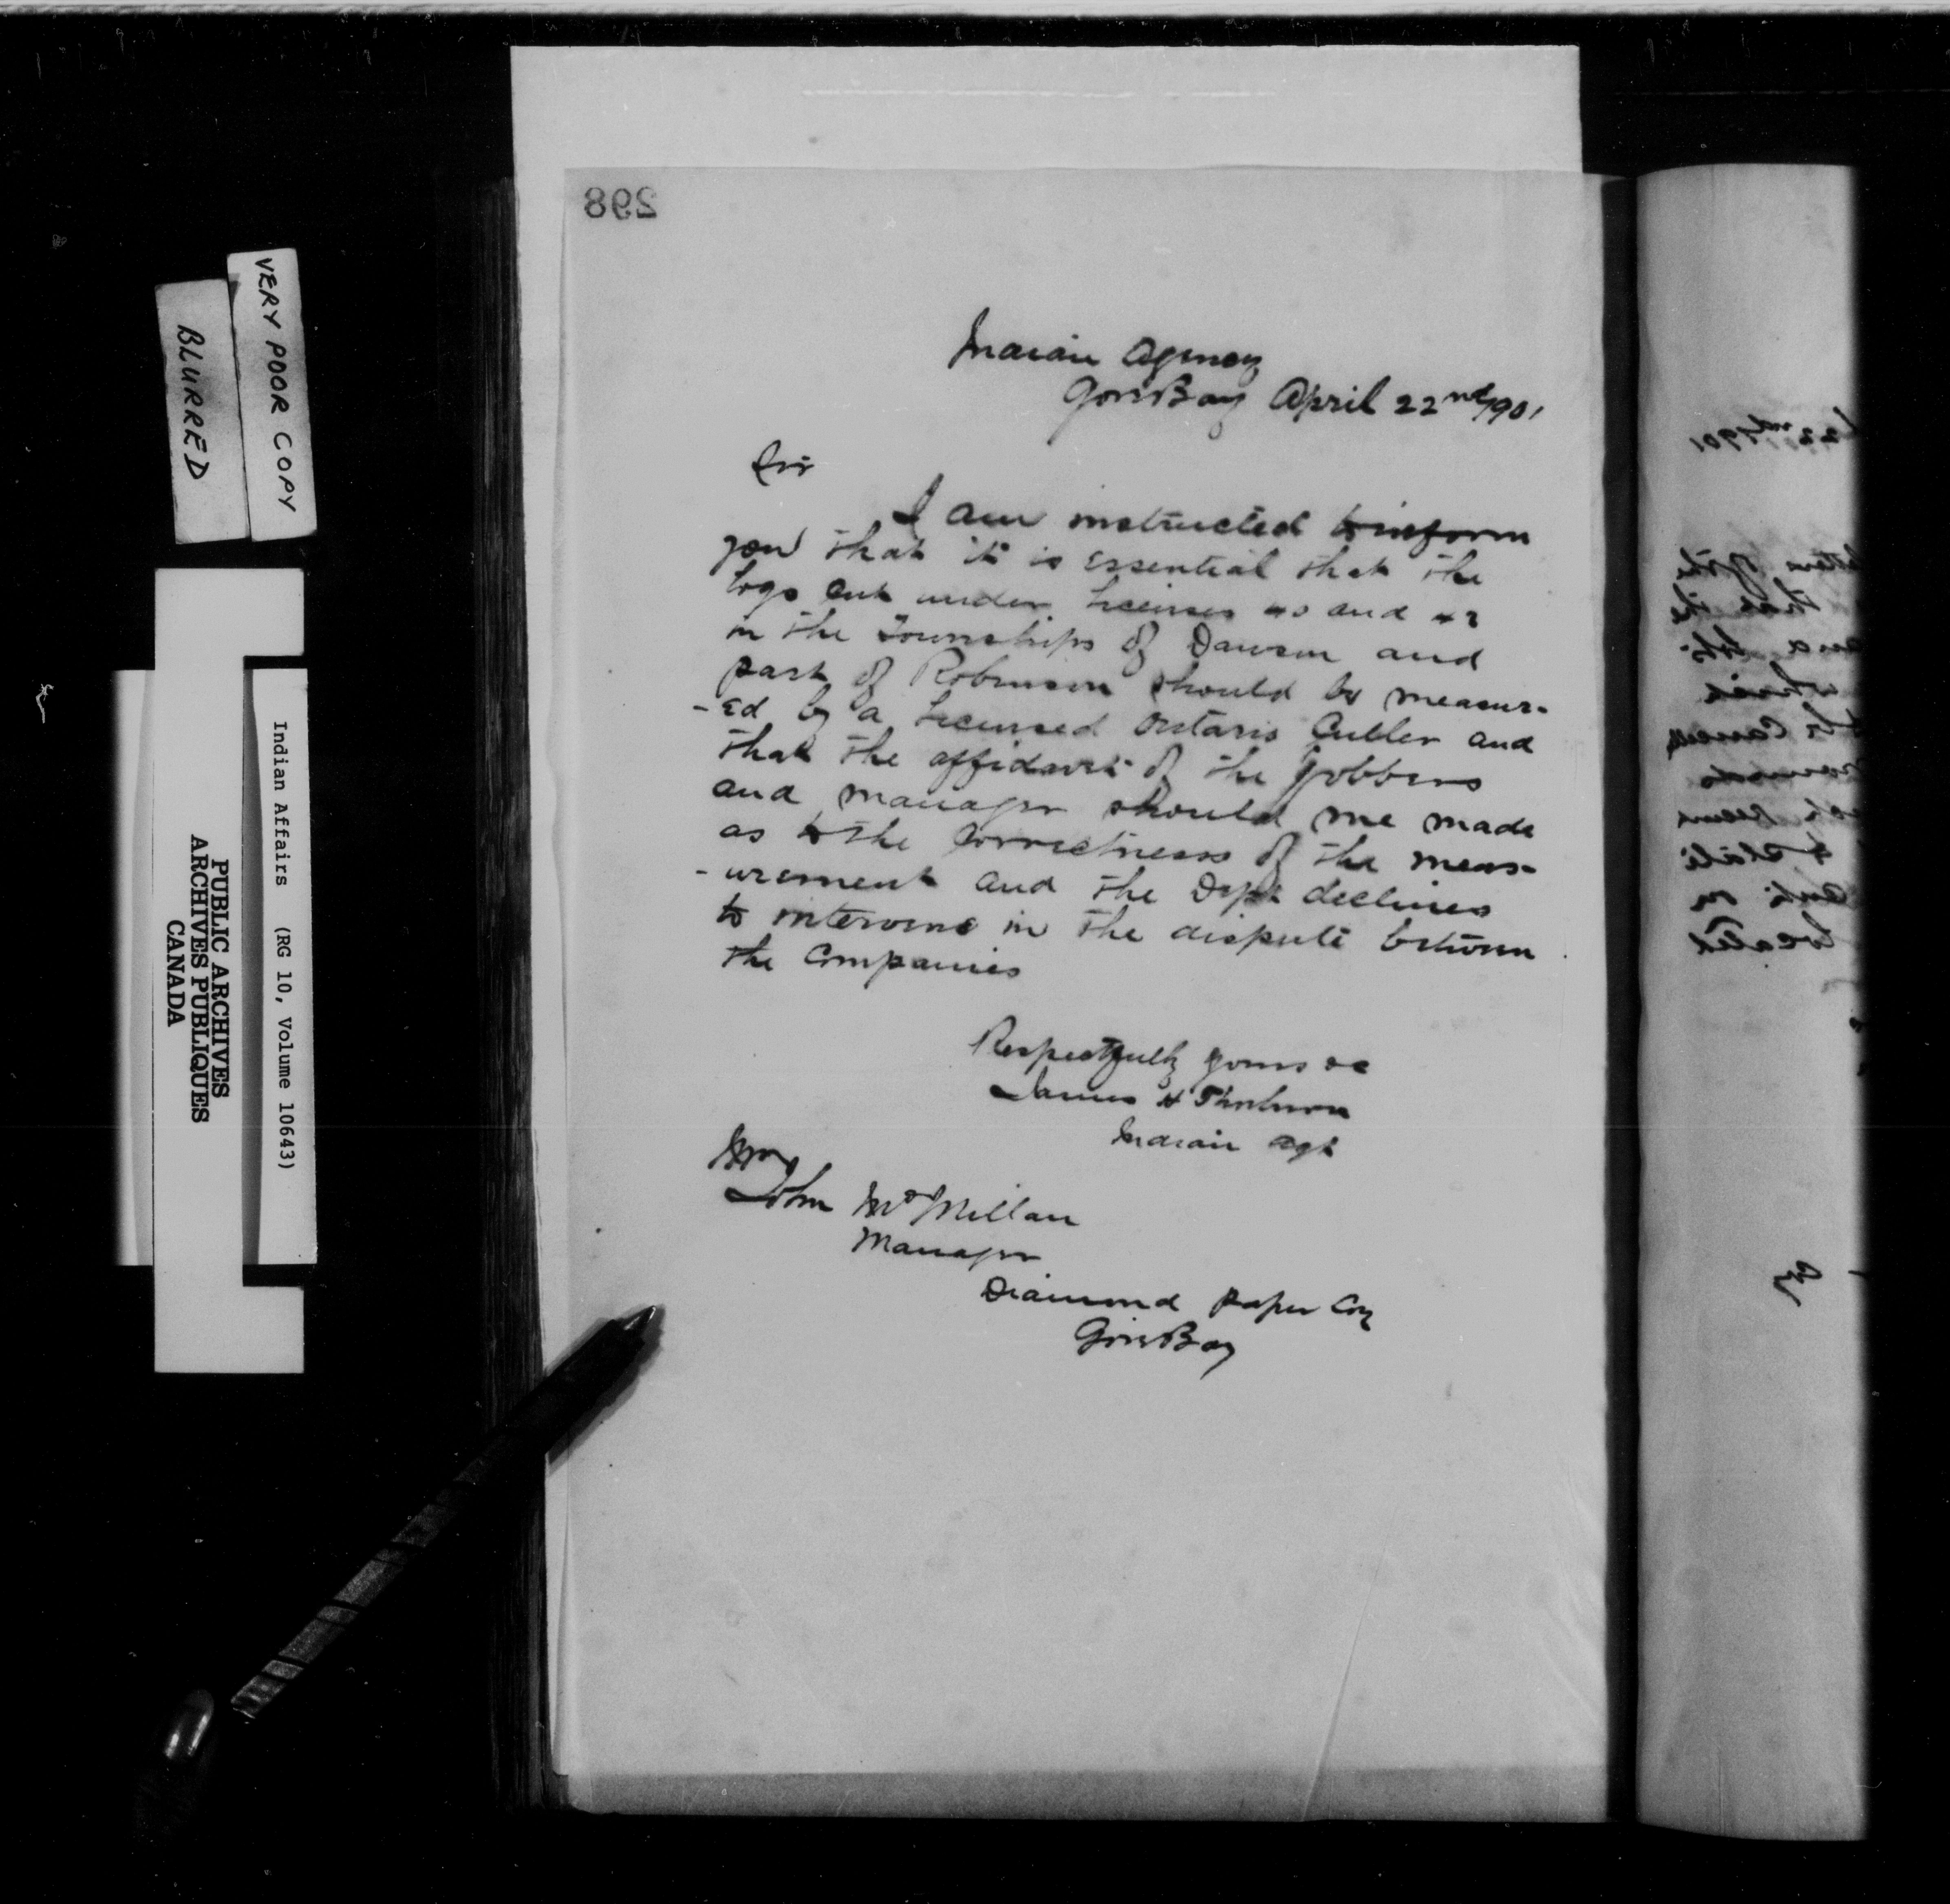 298
Indian Agency
Gore Bay April 22nd 1901
Sir
I am instructed to inform
you that it is essential that the
logs cut under licenses 40 and 42
in the Townships of Dawson and
part of Robinson should be measur-
-ed by a licensed Ontario Culler and
that the affidavit of the jobbers
and manager should me made
as to the correctness of the meas-
-urement and the Dept declines
to intervene in the dispute between
the Companies
Respectfully yours &c
James H Thorburn
Indian Agt
John McMillan
Manager
Diamond paper Coy
Gore Bay
VERY POOR COPY
BLURRED
Indian Affairs (RG 10, Volume 10643)
PUBLIC ARCHIVES
ARCHIVES PUBLIQUES
CANADA